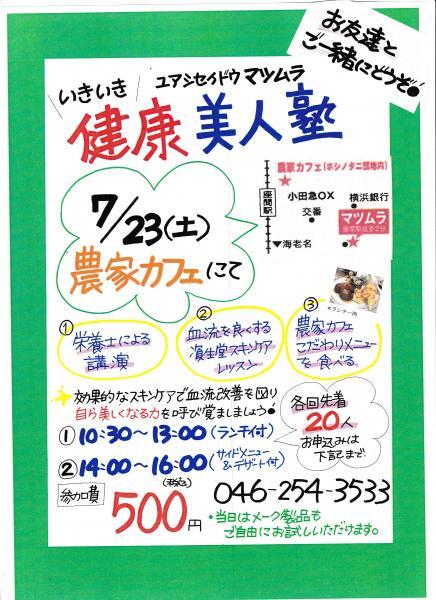 お友達と
ご一緒にどうぞ!
いきいき
ユアシセイドウ マツムラ
健康美人塾
7/23(土)
農家カフェにて
農家カフェ(ホシノタニ団地内)
座間駅
小田急OX
横浜銀行
交番
マツムラ
座間駅徒歩2分
▼海老名
※ランチ一例
① 栄養士による
講演
② 血流を良くする
資生堂スキンケア
レッスン
③ 農家カフェ
こだわりメニュー
を食べる
効果的なスキンケアで血流改善を図り
自ら美しくなる力を呼び覚ましましょう!
①10:30〜13:00(ランチ付)
②14:00〜16:00(サイドメニュー
&デザート付)
各回先着
20人
お申込みは
下記まで
参加費
(税込)
500円
046-254-3533
・当日はメーク製品も
ご自由にお試しいただけます。